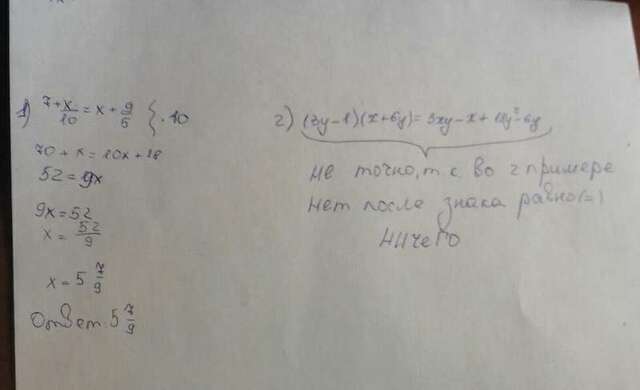 1) 7+x/10 = x + 9/5 } · 10
70 + x = 10x + 18
52 = 9x
9x = 52
x = 52/9
x = 5 7/9
Ответ 5 7/9
2) (3y-1)(x+6y) = 3xy - x + 18y² - 6y
не точно, т.к во 2 примере
нет после знака равно(=)
ничего